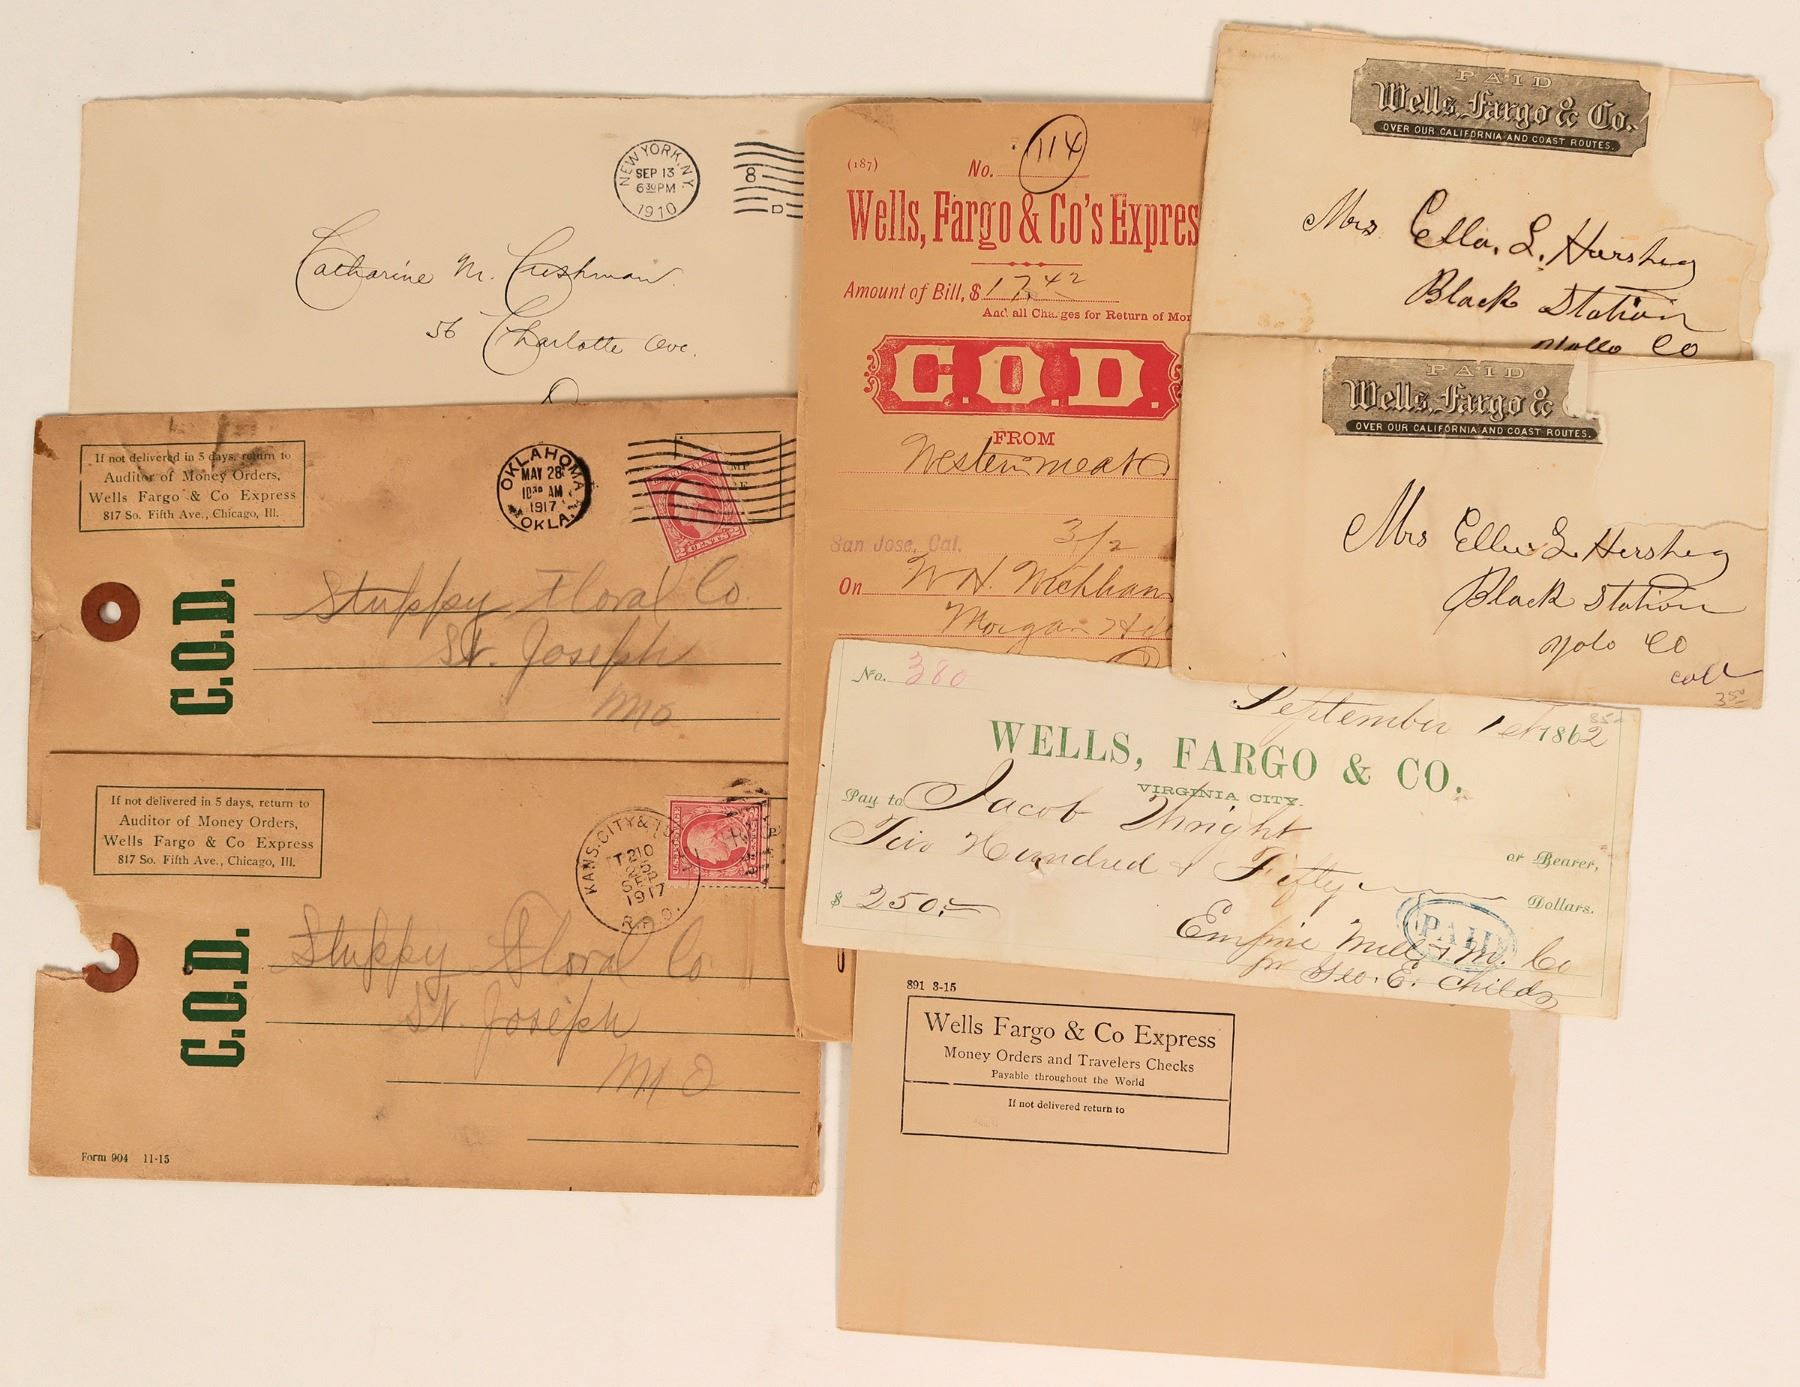 NEW YORK, N.Y.
SEP 13
6 30 PM
1910
8
D
Catharine M. Cushman.
56 Charlotte Ave.
If not delivered in 5 days, return to
Auditor of Money Orders,
Wells Fargo & Co Express
817 So. Fifth Ave., Chicago, Ill.
OKLAHOMA
MAY 28
10 30 AM
1917
OKLA.
2 CENTS 2
C.O.D.
Stuppy Floral Co.
St. Joseph
Mo
If not delivered in 5 days, return to
Auditor of Money Orders,
Wells Fargo & Co Express
817 So. Fifth Ave., Chicago, Ill.
KANS. CITY &
T210
SEP
1917
R.P.O.
C.O.D.
Stuppy Floral Co.
St. Joseph
MO
Form 904 11-15
(187)
No. 114
Wells, Fargo & Co's Expres
Amount of Bill, $ 17 42
And all Charges for Return of Mon
C.O.D.
FROM
Western Meat Co
San Jose, Cal. 3/2
On W. H. Wickham
Morgan Hill
PAID
Wells, Fargo & Co.
OVER OUR CALIFORNIA AND COAST ROUTES.
Mrs Ella. L. Hershey
Black Station
Yollo Co
PAID
Wells, Fargo & C
OVER OUR CALIFORNIA AND COAST ROUTES.
Mrs Ella L Hershey
Black Station
Yolo Co
coll
3 50
No. 380
85-
September 1st 1862
WELLS, FARGO & CO.
VIRGINIA CITY.
Pay to Jacob Wright
or Bearer,
Two Hundred & Fifty Dollars.
$ 250.-
PAID
Empire Mill & M. Co
pr Geo. E. Childs
891 3-15
Wells Fargo & Co Express
Money Orders and Travelers Checks
Payable throughout the World
If not delivered return to